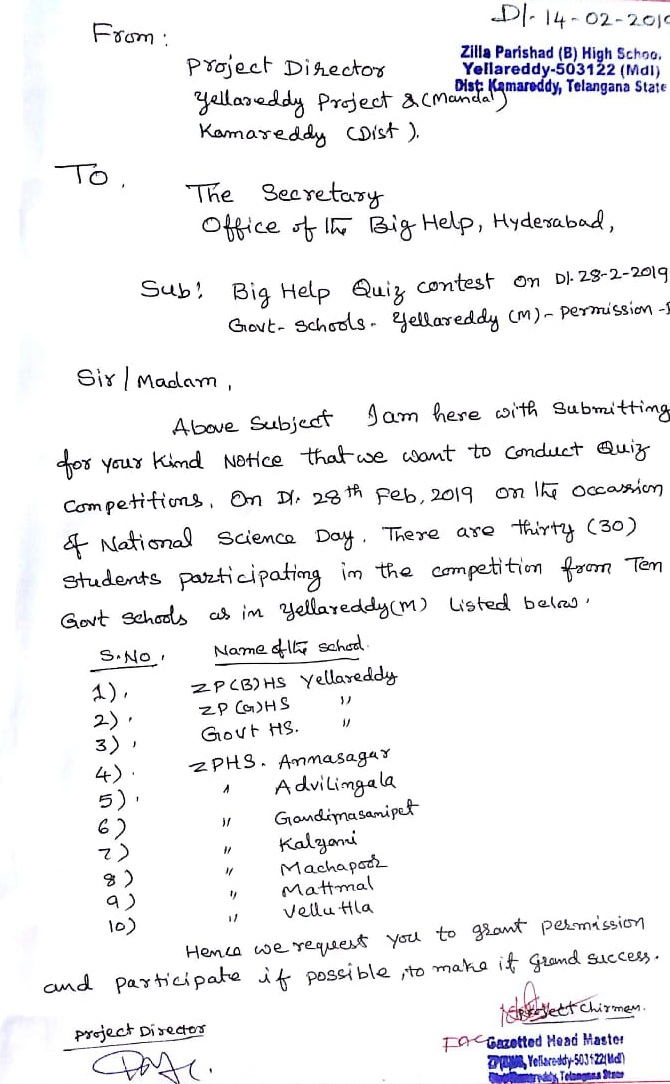 Dt- 14-02-2019
From:
Zilla Parishad (B) High School,
Yellareddy-503122 (Mdl)
Dist: Kamareddy, Telangana State
Project Director
Yellareddy Project & (Mandal)
Kamareddy (Dist).
To,
The Secretary
Office of the Big Help, Hyderabad,
Sub: Big Help Quiz contest on Dt. 28-2-2019
Govt- Schools- Yellareddy (M) - permission -
Sir/Madam,
Above Subject I am here with Submitting
for your kind Notice that we want to conduct Quiz
Competitions. On Dt. 28th Feb, 2019 on the occassion
of National Science Day. There are thirty (30)
Students participating in the competition from Ten
Govt Schools as in Yellareddy(M) Listed below.
S.No, Name of the School.
1), ZP(B)HS Yellareddy
2), ZP(G)HS "
3), Govt HS. "
4). ZPHS. Annasagar
5), " Advilingala
6) " Gandimasanipet
7) " Kalyani
8) " Machapoor
9) " Mattmal
10) " Vellutla
Hence we request you to grant permission
and participate if possible, to make it grand success.
Project Chirmen.
Project Director
FAC Gazetted Head Master
Yellareddy-503122(Mdl)
Telangana State